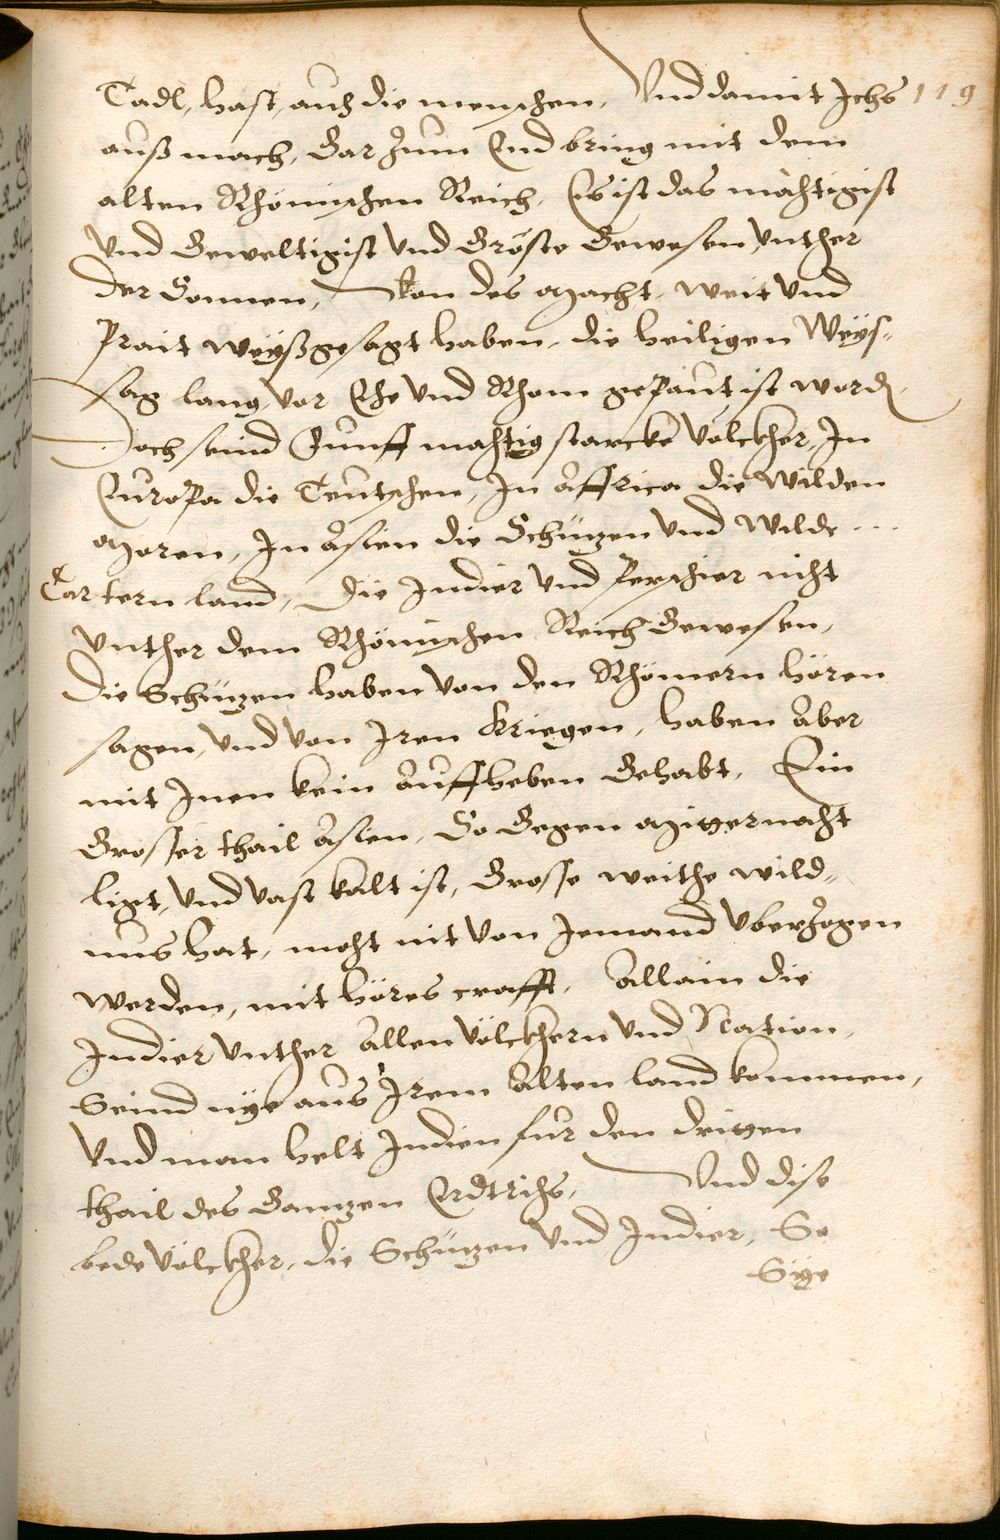 Tadl, hast auch die menschen, Vnd damit Ichs 119
auß mach, Gar zum End bring mit dem
alten Rhömischen Reich, Es ist das mächtigist
Vnd Geweltigist Vnd Gröste Gewesen Vnther
der Sonnen, Von des Macht, weit Vnd
Prait weyßgesagt haben, die heiligen Weys-
sag lang, Vor Ehe Vnd Rhom gepaut ist word
Doch seind Funff mächtig starcke Völckher, In
Europa die Teutschen, In Affrica die Wilden
Moren, In Asien die Schützen Vnd Wilde ...
Tartern land, Die Indier Vnd Perschier nicht
Vnther dem Rhömischen Reich Gewesen,
Die Schützen haben Von den Rhömern hören
sagen, Vnd Von Iren Kriegen, haben Aber
mit Inen kein Auffheben Gehabt, Ein
Grosser thail Asien, So Gegen Miternacht
ligt, Vnd Vast kalt ist, Grosse weithe wild-
nus hat, mocht nit Von Jemand Vberzogen
werden, mit höres crafft, Allain die
Indier Vnther Allen Völckhern Vnd Nation,
Seind nye aus Irem Alten land kommen,
Vnd man helt Indien fur den driten
thail des Gantzen Erdtrichs, Vnd dise
bede Völckher, die Schützen Vnd Indier, So
Sye